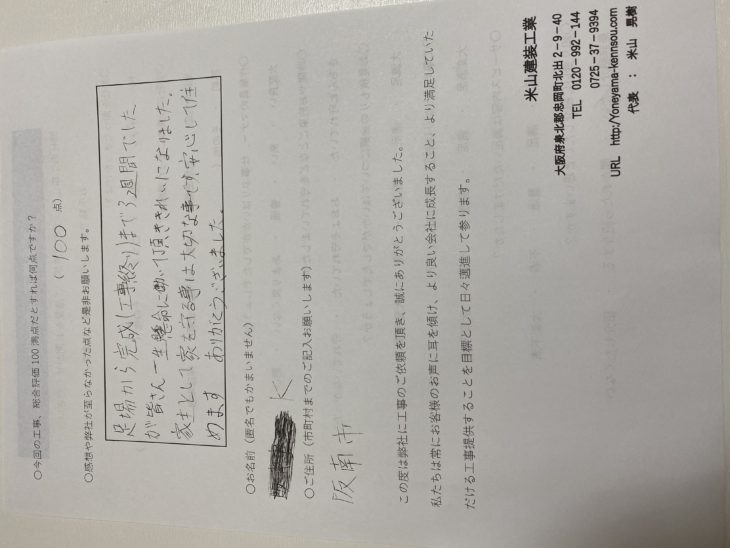 〇今回の工事、総合評価100満点だとすれば何点ですか？
（ 100 点）
〇感想や弊社が至らなかった点など是非お願いします。
足場から完成(工事終り)まで3週間でした
が皆さん一生懸命に動いて頂ききれいになりました。
家主として家を守る事は大切な事です。安心して住
めます ありがとうございました。
〇お名前（匿名でもかまいません）
K
〇ご住所（市町村までのご記入お願いします）
阪南市
この度は弊社に工事のご依頼を頂き、誠にありがとうございました。
私たちは常にお客様のお声に耳を傾け、より良い会社に成長すること、より満足していた
だける工事提供することを目標として日々邁進して参ります。
米山建装工業
大阪府泉北郡忠岡町北出2－9－40
TEL 0120－992－144
0725－37－9394
URL http:/Yoneyama-kennsou.com
代表 ： 米山 晃樹